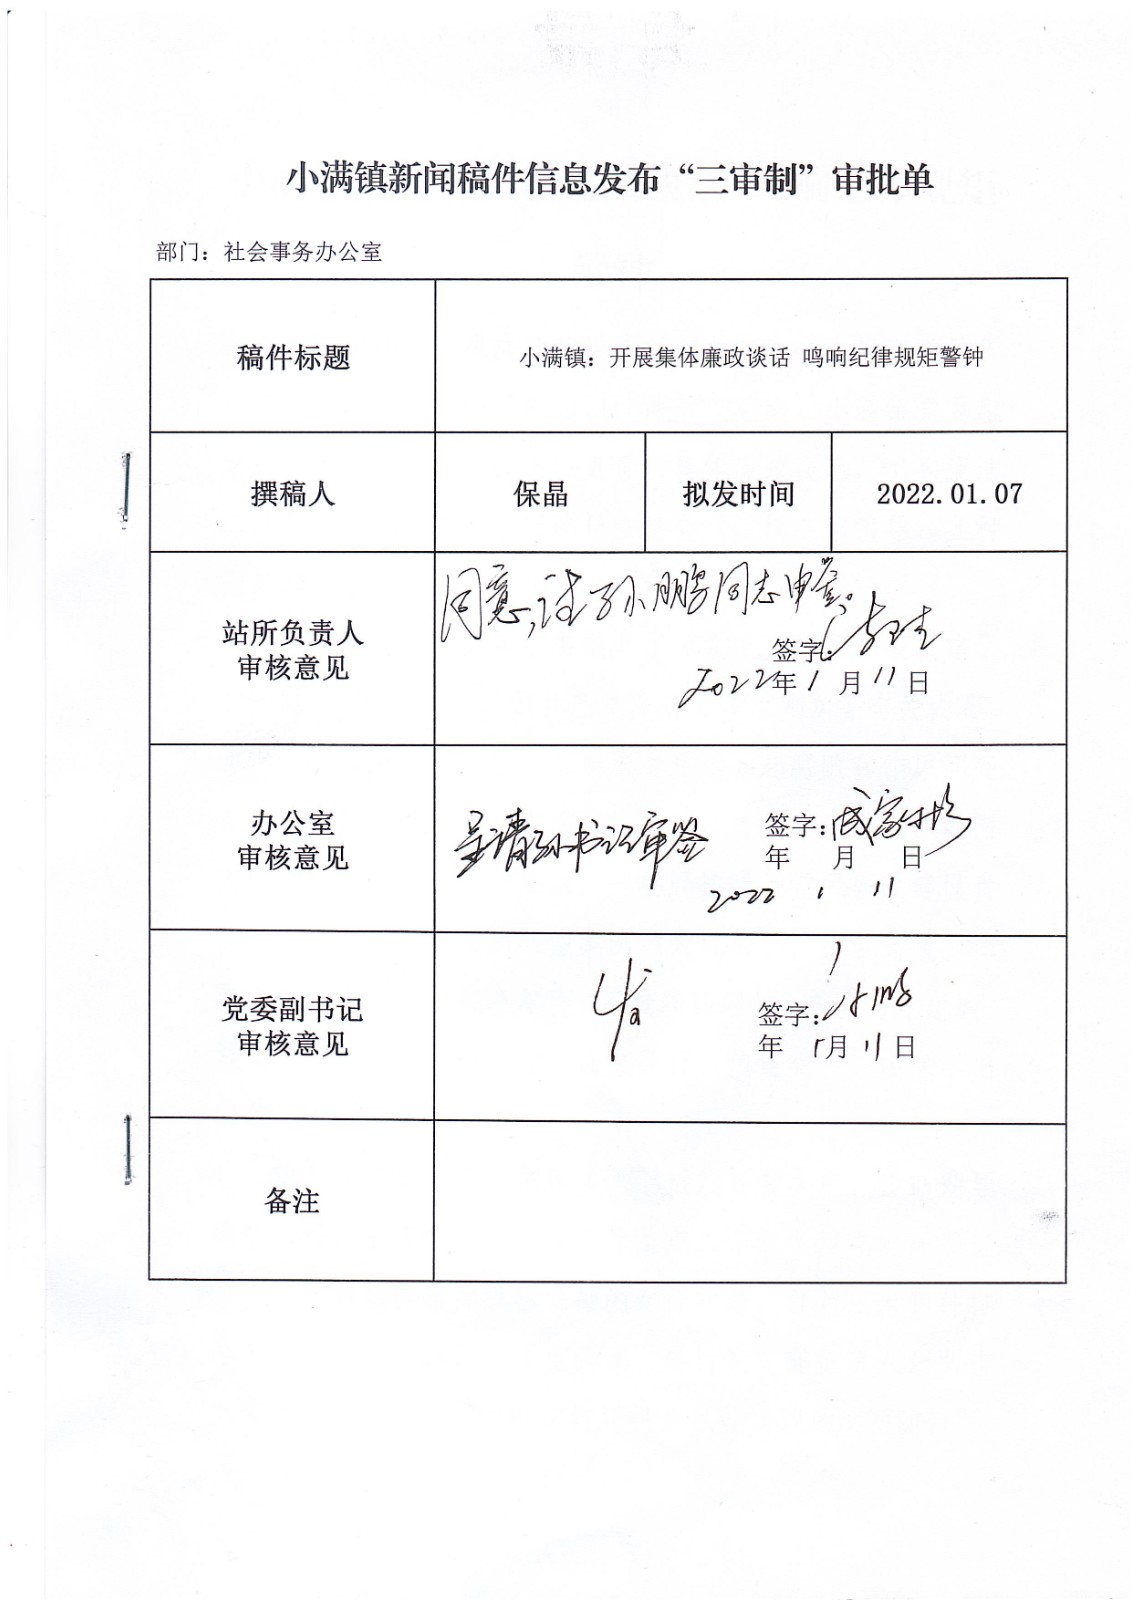 小满镇新闻稿件信息发布“三审制”审批单
部门：社会事务办公室
稿件标题
小满镇：开展集体廉政谈话 鸣响纪律规矩警钟
撰稿人
保晶
拟发时间
2022.01.07
站所负责人
审核意见
同意，请孙鹏同志审签。
签字：
2022年1月11日
办公室
审核意见
呈请孙书记审签
签字：
年 月 日
2022 1 11
党委副书记
审核意见
签字：孙鹏
年 1月11日
备注